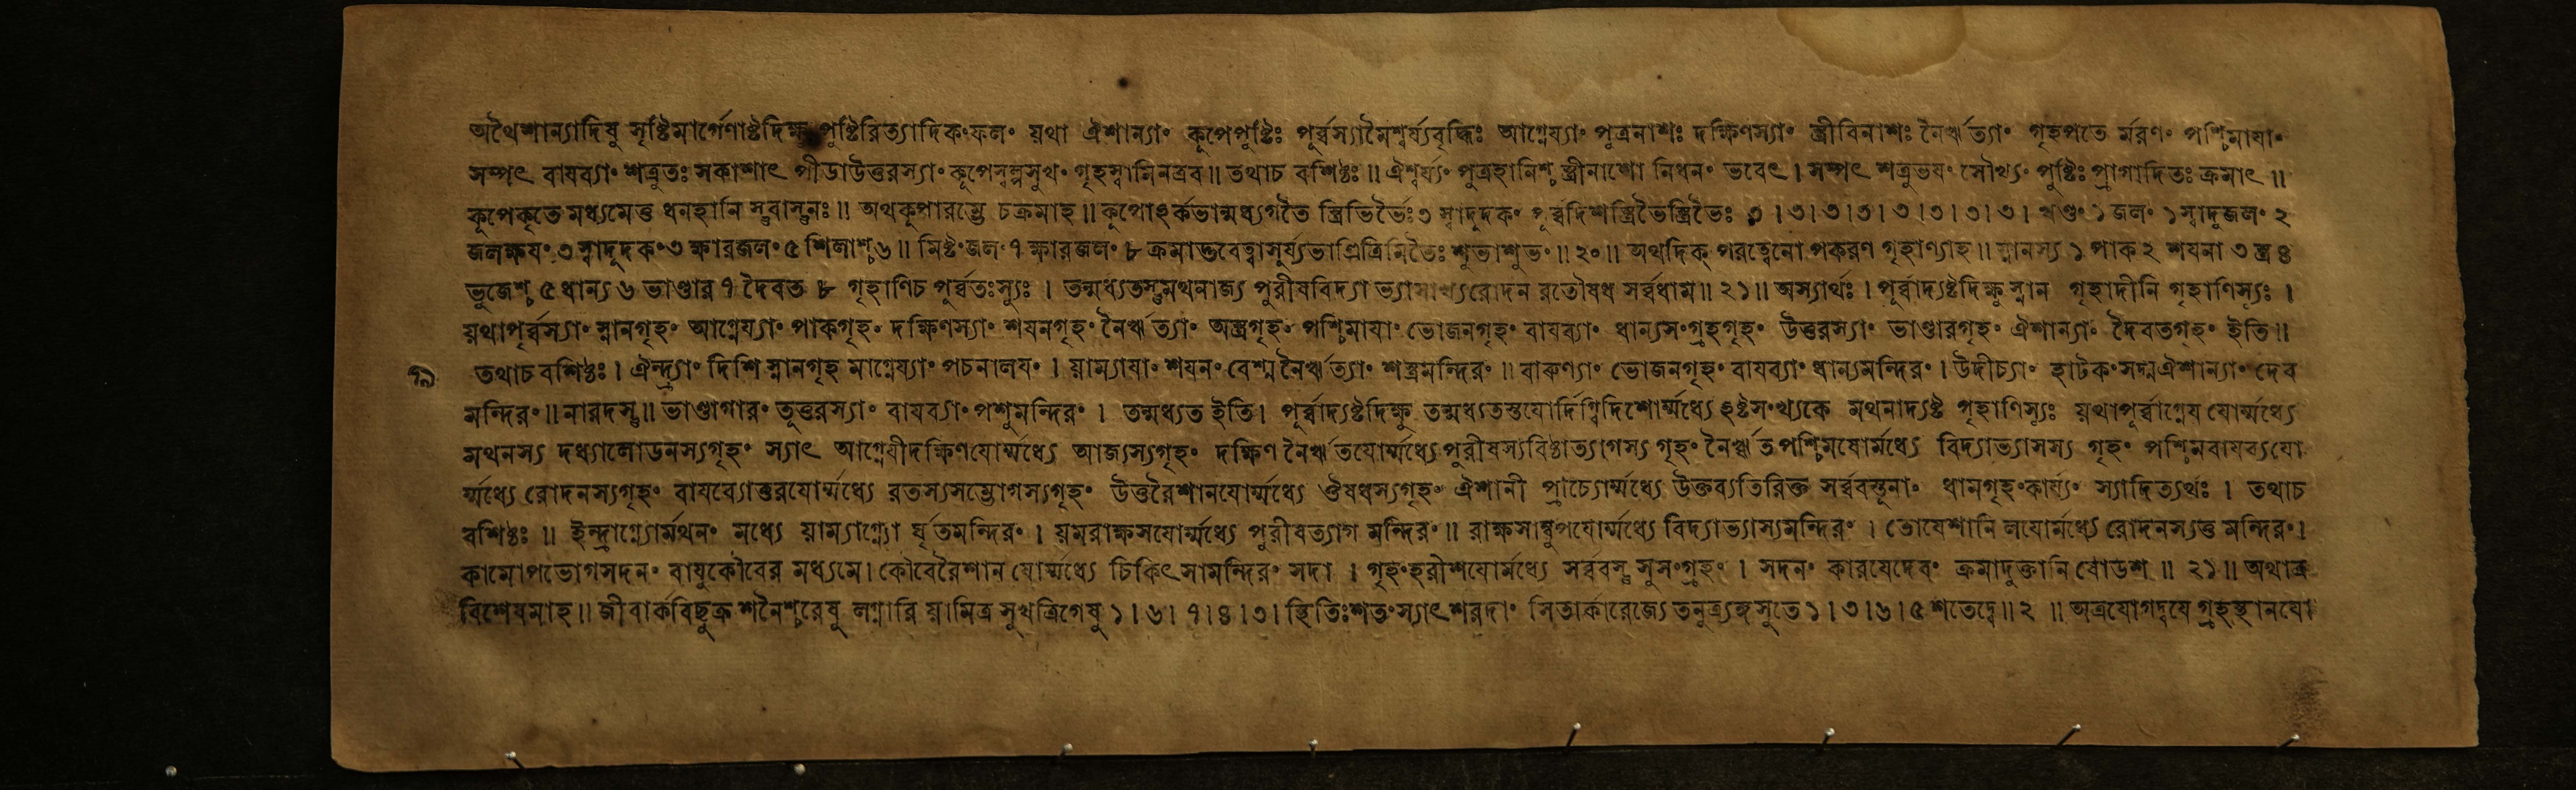 অথৈশান্যাদিষু সৃষ্টিমার্গেণাষ্টদিক্ষু পুষ্টিরিত্যাদিকংফলং য়থা ঐশান্যাং কূপেপুষ্টিঃ পূর্ব্বস্যামৈশ্বর্য্যবৃদ্ধিঃ আগ্নেয্যাং পুত্রনাশঃ দক্ষিণস্যাং স্ত্রীবিনাশঃ নৈর্ঋত্যাং গৃহপতে র্মরণং পশ্চিমাযাং
সম্পৎ বাযব্যাং শত্রুতঃ সকাশাৎ পীডাউত্তরস্যাং কূপেসম্পন্নসুখং গৃহস্বামিনত্রব॥ তথাচ বশিষ্ঠঃ॥ ঐশ্বর্য্যং পুত্রহানিশ্চ স্ত্রীনাশো নিধনং ভবেৎ। সম্পৎ শত্রুভযং সৌখ্যং পুষ্টিঃ প্রাগাদিতঃ ক্রমাৎ॥
কূপেকৃতে মধ্যমেত্তু ধনহানি স্তুবাস্তুনঃ॥ অথকূপারম্ভে চক্রমাহ॥ কূপেঽর্কভান্মধ্যগতৈ স্ত্রিভির্ভৈঃ৩ স্বাদূদকং পূর্ব্বদিশস্ত্রিভৈস্ত্রিভৈঃ ৩।৩।৩।৩।৩।৩।৩।৩। খণ্ডং ১ জলং ১ স্বাদুজলং ২
জলক্ষযং ৩ স্বাদূদকং ৩ ক্ষারজলং ৫ শিলাশ্চ ৬॥ মিষ্টংজলং ৭ ক্ষারজলং ৮ ক্রমাত্তবেত্বাসূর্য্যভাৎত্রিত্রিমিতৈঃ শুভাশুভং॥ ২০॥ অথদিক্ পরত্বেনো পকরণ গৃহাণ্যাহ॥ স্নানস্য ১ পাক ২ শযনা ৩ স্ত্র ৪
ভুজেশ্চ ৫ ধান্য ৬ ভাণ্ডার ৭ দৈবত ৮ গৃহাণিচ পূর্ব্বতঃস্যুঃ। তন্মধ্যতস্তুমথনাজ্য পুরীষবিদ্যা ভ্যাসাখ্যরোদন রতৌষধ সর্ব্বধাম॥ ২১॥ অস্যার্থঃ। পূর্ব্বাদ্যষ্টদিক্ষু স্নান গৃহাদীনি গৃহাণিস্যুঃ।
য়থাপূর্ব্বস্যাং স্নানগৃহং আগ্নেয্যাং পাকগৃহং দক্ষিণস্যাং শযনগৃহং নৈর্ঋত্যাং অস্ত্রগৃহং পশ্চিমাযাং ভোজনগৃহং বাযব্যাং ধান্যসংগ্রহগৃহং উত্তরস্যাং ভাণ্ডারগৃহং ঐশান্যাং দৈবতগৃহং ইতি॥
৭৯ তথাচ বশিষ্ঠঃ। ঐন্দ্র্যাং দিশি স্নানগৃহ মাগ্নেয্যাং পচনালযং। য়াম্যাযাং শযনং বেশ্ম নৈর্ঋত্যাং শস্ত্রমন্দিরং॥ বারুণ্যাং ভোজনগৃহং বাযব্যাং ধান্যমন্দিরং। উদীচ্যাং হাটকংসদ্মঐশান্যাং দেব
মন্দিরং॥ নারদস্তু॥ ভাণ্ডাগারং তূত্তরস্যাং বাযব্যাং পশুমন্দিরং। তন্মধ্যত ইতি। পূর্ব্বাদ্যষ্টদিক্ষু তন্মধ্যতস্তযোর্দিগ্বিদিশোর্ম্মধ্যে ঽষ্টসংখ্যকে মথনাদ্যষ্ট গৃহাণিস্যুঃ য়থাপূর্ব্বাগ্নেয যোর্ম্মধ্যে
মথনস্য দধ্যালোডনস্যগৃহং স্যাৎ আগ্নেযীদক্ষিণযোর্ম্মধ্যে আজ্যস্যগৃহং দক্ষিণ নৈর্ঋতযোর্ম্মধ্যে পুরীষস্যবিষ্ঠাত্যাগস্য গৃহং নৈর্ঋত পশ্চিমযোর্মধ্যে বিদ্যাভ্যাসস্য গৃহং পশ্চিমবাযব্যযো
র্ম্মধ্যে রোদনস্যগৃহং বাযব্যোত্তরযোর্ম্মধ্যে রতস্যসম্ভোগস্যগৃহং উত্তরৈশানযোর্ম্মধ্যে ঔষধস্যগৃহং ঐশানী প্রাচ্যোর্ম্মধ্যে উক্তব্যতিরিক্ত সর্ব্ববস্তূনাং ধানগৃহংকার্য্যং স্যাদিত্যর্থঃ। তথাচ
বশিষ্ঠঃ॥ ইন্দ্রাগ্ন্যোর্মথনং মধ্যে য়াম্যাগ্ন্যো র্ঘৃতমন্দিরং। য়মরাক্ষসযোর্ম্মধ্যে পুরীষত্যাগ মন্দিরং॥ রাক্ষসাম্বুপযোর্ম্মধ্যে বিদ্যাভ্যাস্যমন্দিরং। তোযেশানি লযোর্মধ্যে রোদনস্যত্তু মন্দিরং।
কামোপভোগসদনং বাযুকৌবের মধ্যমে। কৌবেরৈশান যোর্ম্মধ্যে চিকিৎসামন্দিরং সদা। গৃহংহরীশযোর্মধ্যে সর্ব্ববস্তু সুসংগ্রহং। সদনং কারযেদেবং ক্রমাদুক্তানি ষোডশ॥ ২১॥ অথাত্র
বিশেষমাহ॥ জীবার্কবিচ্ছুক্র শনৈশ্চরেষু লগ্নারি য়ামিত্র সুখত্রিগেষু ১।৬।৭।৪।৩। স্থিতিঃশতংস্যাৎশরদাং সিতার্কারেজ্যে তনুত্র্যঙ্গসুতে ১।৩।৬।৫ শতেদ্বে॥ ২॥ অত্রযোগদ্বযে গ্রহস্থানযো